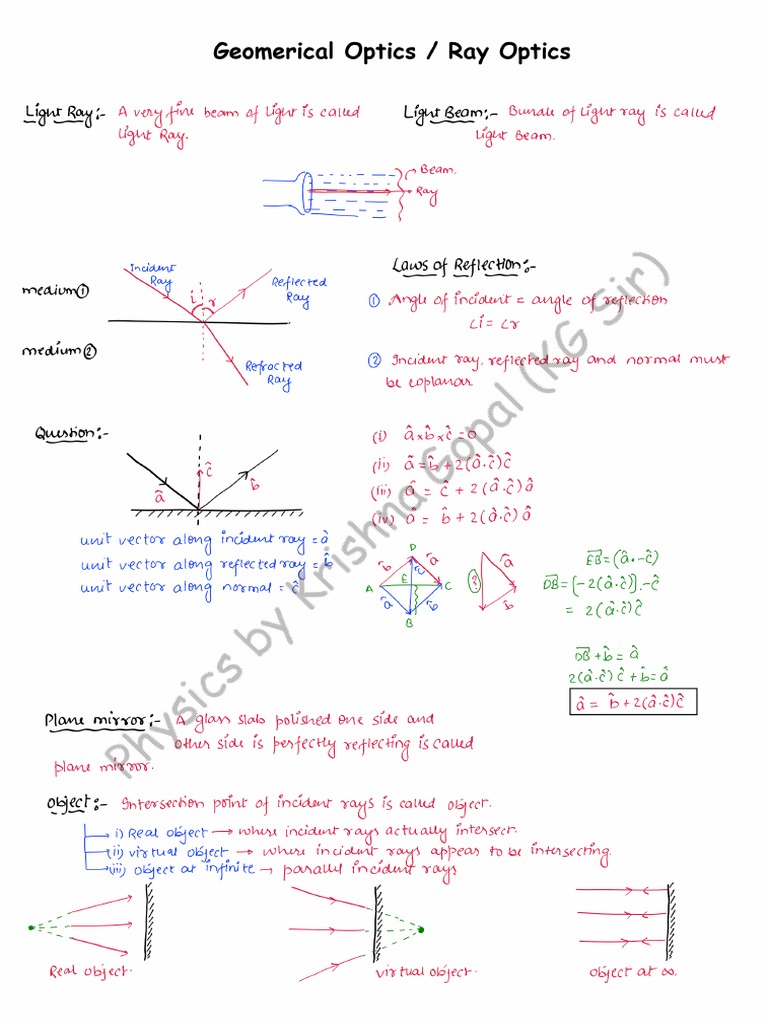 Geomerical Optics / Ray Optics
Light Ray:- A very fine beam of light is called
light Ray.
Light Beam:- Bundle of light ray is called
light Beam.
Beam.
Ray
Incident
Ray
Reflected
Ray
i r
medium ①
medium ②
Refracted
Ray
Laws of Reflection:-
① Angle of incident = angle of reflection
∠i = ∠r
② Incident ray, reflected ray and normal must
be coplanar.
Question:-
â ĉ b̂
unit vector along incident ray = â
unit vector along reflected ray = b̂
unit vector along normal = ĉ
(i) â×b̂×ĉ = 0
(ii) â = b̂ + 2(â·ĉ)ĉ
(iii) â = ĉ + 2(â·ĉ)â
(iv) â = b̂ + 2(â·ĉ)â
D
b̂ ĉ â
A E C
â b̂
B
? â b̂
EB = (â·-ĉ)
DB = [-2(â·ĉ)]·-ĉ
= 2(â·ĉ)ĉ
DB + b̂ = â
2(â·ĉ)ĉ + b̂ = â
â = b̂ + 2(â·ĉ)ĉ
Plane mirror:- A glass slab polished one side and
other side is perfectly reflecting is called
plane mirror.
Object:- Intersection point of incident rays is called object.
i) Real object → where incident rays actually intersect.
(ii) virtual object → where incident rays appear to be intersecting.
(iii) object at infinite → parallel incident rays
Real object.
virtual object.
object at ∞.
Physics by Krishna Gopal (KG Sir)